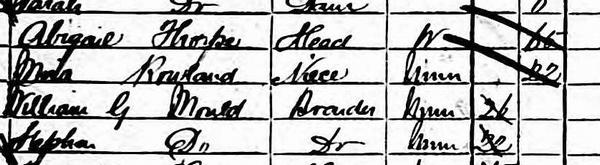 Sarah Do Daur 0
Abigail Thorpe Head W 65
Rowland Niece Unm 27
William G Mould Boarder Unm 26
Stephen Do Do Unm 32